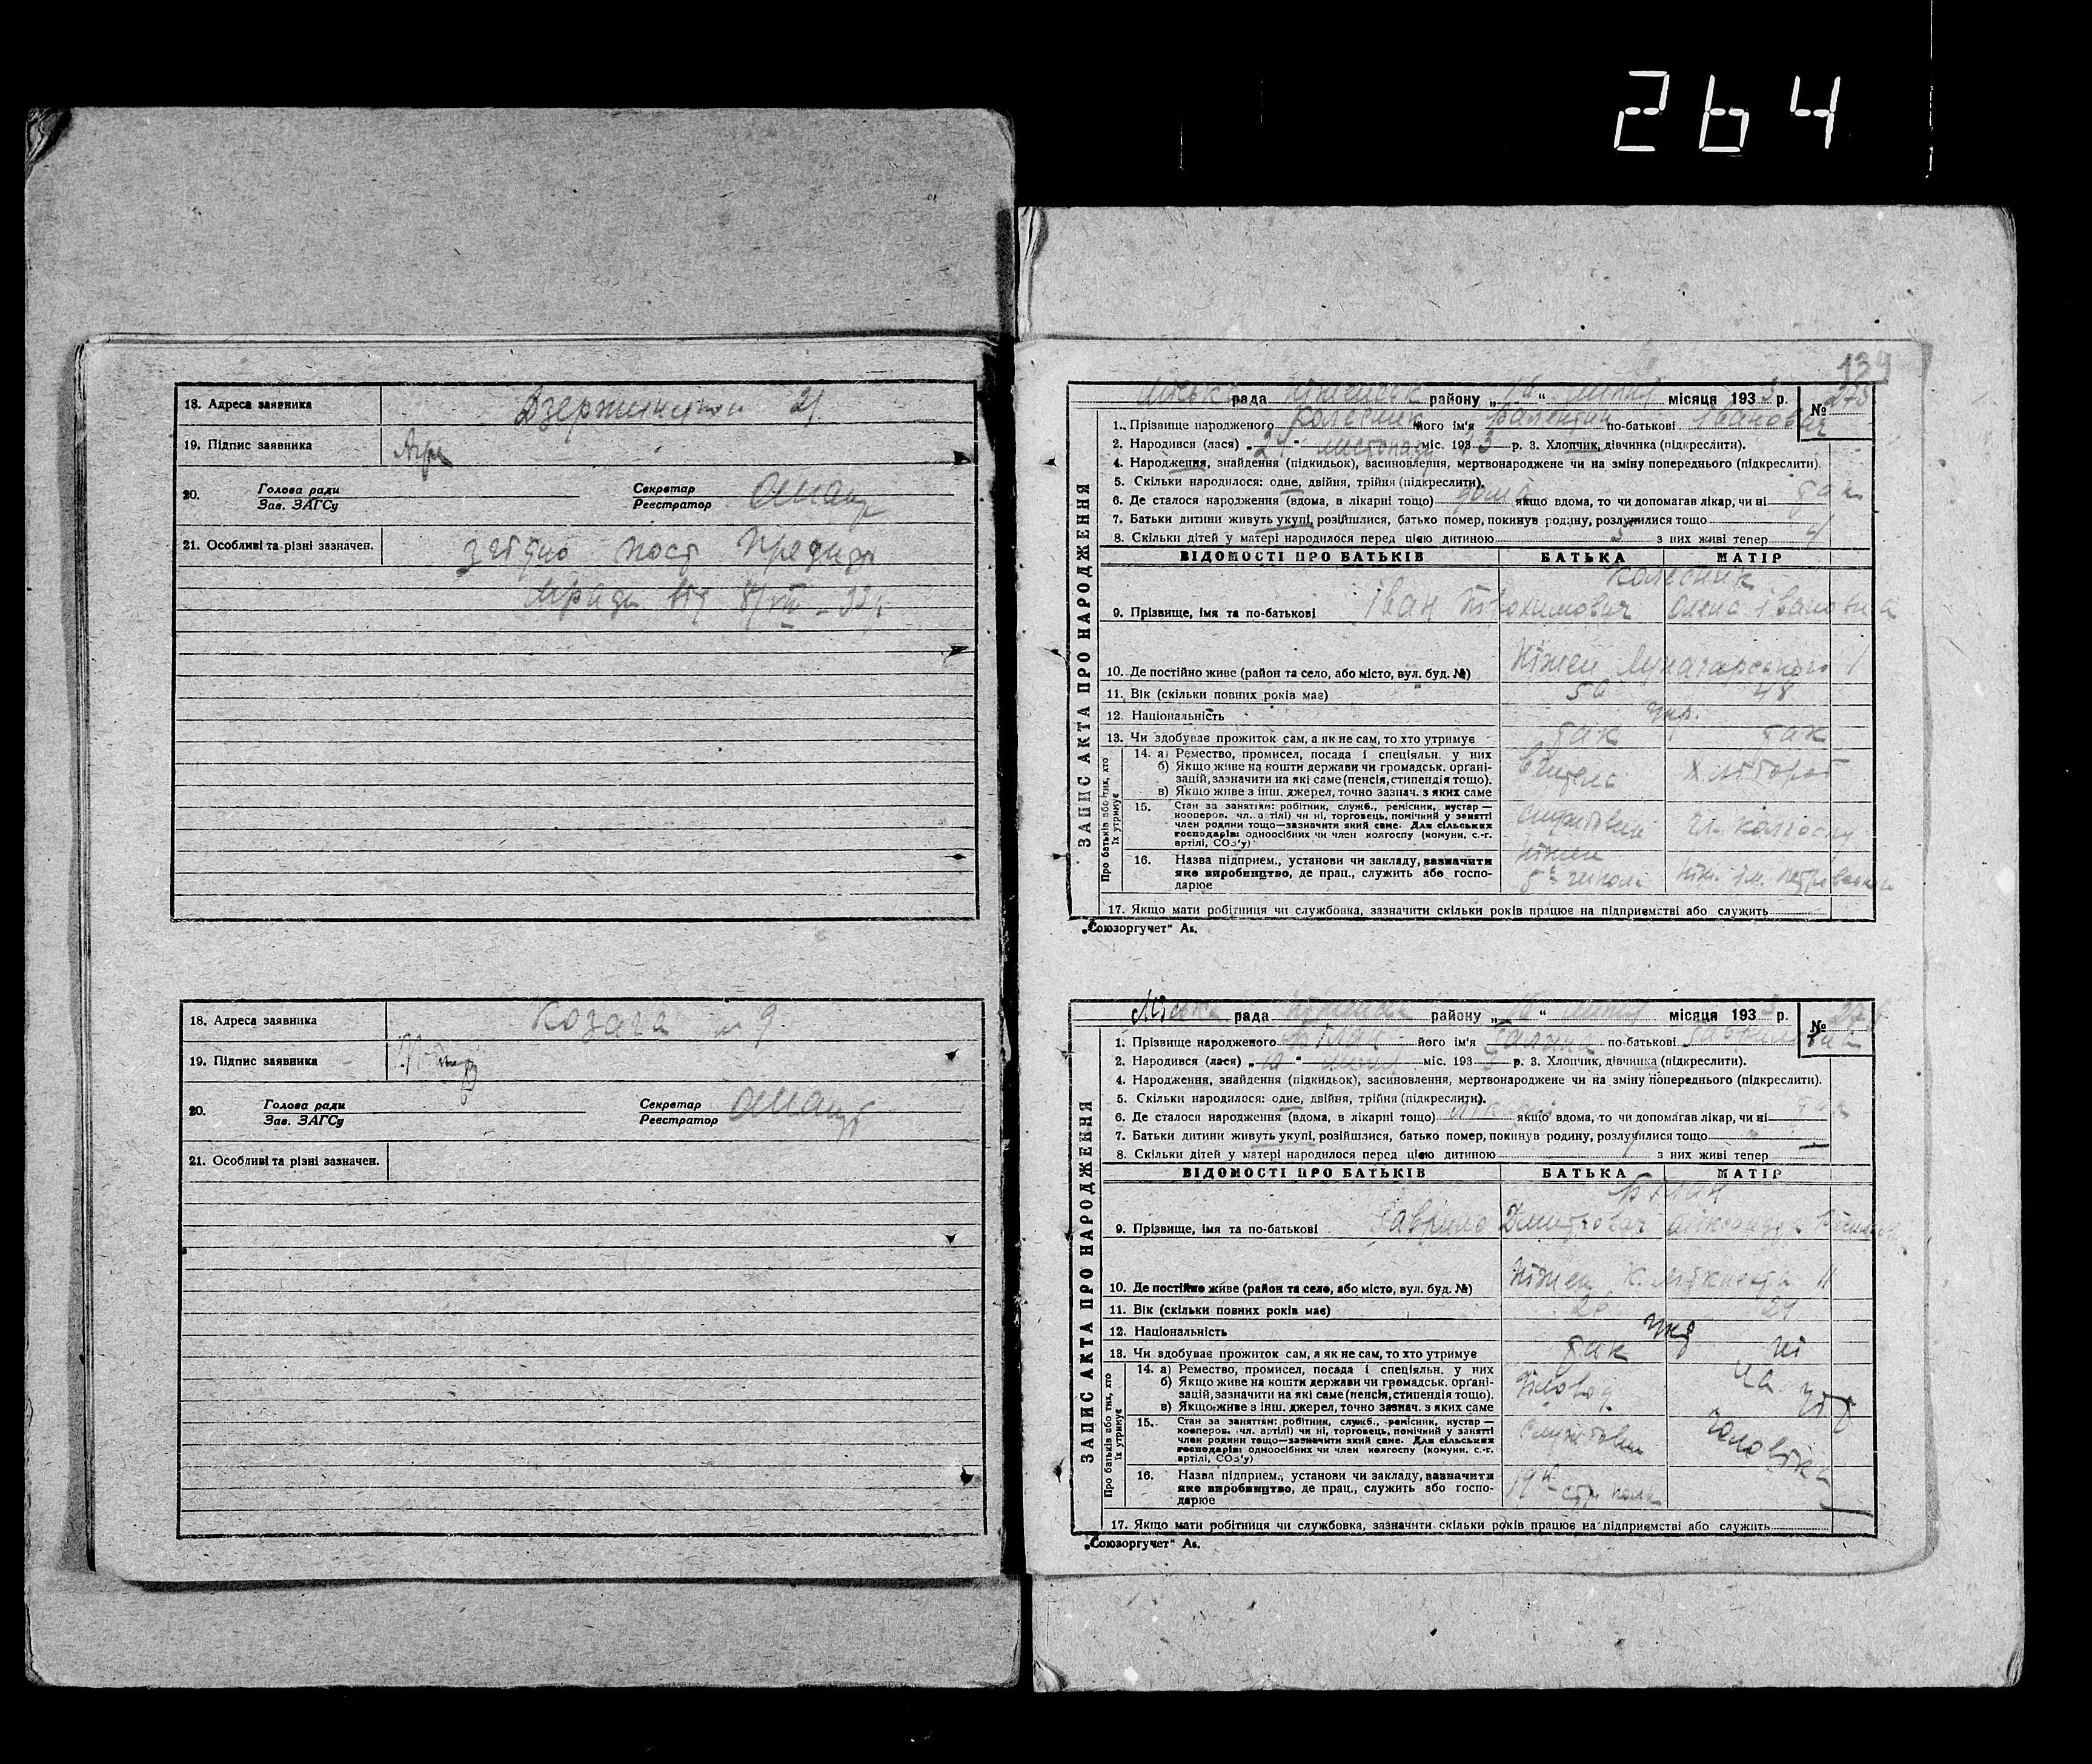 264
18. Адреса заявника Дзержинского 21
19. Підпис заявника
20. Голова ради Секретар
Зав. ЗАГСу Реєстратор
21. Особливі та різні зазначен. згідно пост Презид
від 8/VIII–33 г.
18. Адреса заявника Козача № 9
19. Підпис заявника
20. Голова ради Секретар
Зав. ЗАГСу Реєстратор
21. Особливі та різні зазначен.
139
ЗАПИС АКТА ПРО НАРОДЖЕННЯ
Міська рада Ніженськ району „16“ липня місяця 1933 р. № 275
1. Прізвище народженого Колесник його ім'я Валентин по-батькові Іванович
2. Народився (лася) „21“ листопаду міс. 193 р. 3. Хлопчик, дівчинка (підкреслити).
4. Народження, знайдення (підкидьок), васиновлення, мертвонароджене чи на зміну попереднього (підкреслити).
5. Скільки народилося: одне, двійня, трійня (підкреслити).
6. Де сталося народження (вдома, в лікарні тощо) дома якщо вдома, то чи допомагав лікар, чи ні так
7. Батьки дитини живуть укупі, розійшлися, батько помер, покинув родину, розлучилися тощо
8. Скільки дітей у матері народилося перед цією дитиною 5 з них живі тепер 4
ВІДОМОСТІ ПРО БАТЬКІВ БАТЬКА МАТІР
Колесник
9. Прізвище, імя та по-батькові Іван Олена Івановна
10. Де постійно живе (район та село, або місто, вул. буд. №) Ніжен Луначарського 1
11. Вік (скільки повних років має) 50 48
12. Національність укр.
13. Чи здобуває прожиток сам, а як не сам, то хто утримує так так
Про батьків або тих, хто їх утримує
14. а) Ремество, промисел, посада і спеціяльн. у них
б) Якщо живе на кошти держави чи громадськ. органі-
зацій, зазначити на які саме (пенсія, стипендія тощо).
в) Якщо живе з інш. джерел, точно зазнач. з яких саме
Вчитель Хлібороб
15. Стан за заняттям: робітник, служб., ремісник, кустар —
кооперов. чл. артілі) чи ні, торговець, помічний у занятті
член родини тощо—зазначити який саме. Для сільських
господарів: одноосібних чи член колгоспу (комуни, с.-г.
артілі, СОЗ'у)
Службовець чл. колгоспу
16. Назва підприєм., установи чи закладу, вазначити
яке виробництво, де прац., служить або госпо-
дарює
Ніжен
5а школа Ніж. ім. Петровського
17. Якщо мати робітниця чи службовка, зазначити скільки років працює на підприємстві або служить
„Союзоргучет“ Ав.
ЗАПИС АКТА ПРО НАРОДЖЕННЯ
Міська рада району „16“ липня місяця 1933 р. №
1. Прізвище народженого Білан його ім'я Галина по-батькові
2. Народився (лася) „10“ липня міс. 1933 р. 3. Хлопчик, дівчинка (підкреслити).
4. Народження, знайдення (підкидьок), васиновлення, мертвонароджене чи на зміну попереднього (підкреслити).
5. Скільки народилося: одне, двійня, трійня (підкреслити).
6. Де сталося народження (вдома, в лікарні тощо) якщо вдома, то чи допомагав лікар, чи ні так
7. Батьки дитини живуть укупі, розійшлися, батько помер, покинув родину, розлучилися тощо
8. Скільки дітей у матері народилося перед цією дитиною з них живі тепер —
ВІДОМОСТІ ПРО БАТЬКІВ БАТЬКА МАТІР
Білан
9. Прізвище, імя та по-батькові Гаврило Дмитрович
10. Де постійно живе (район та село, або місто, вул. буд. №) Ніжен К. Лібкнехта 11
11. Вік (скільки повних років має) 28 29
12. Національність укр
13. Чи здобуває прожиток сам, а як не сам, то хто утримує так ні
Про батьків або тих, хто їх утримує
14. а) Ремество, промисел, посада і спеціяльн. у них
б) Якщо живе на кошти держави чи громадськ. органі-
зацій, зазначити на які саме (пенсія, стипендія тощо).
в) Якщо живе з інш. джерел, точно зазнач. з яких саме
Діловод на утр
15. Стан за заняттям: робітник, служб., ремісник, кустар —
кооперов. чл. артілі) чи ні, торговець, помічний у занятті
член родини тощо—зазначити який саме. Для сільських
господарів: одноосібних чи член колгоспу (комуни, с.-г.
артілі, СОЗ'у)
Службовець чоловіка
16. Назва підприєм., установи чи закладу, вазначити
яке виробництво, де прац., служить або госпо-
дарює
19й стр. полк
17. Якщо мати робітниця чи службовка, зазначити скільки років працює на підприємстві або служить
„Союзоргучет“ Ав.